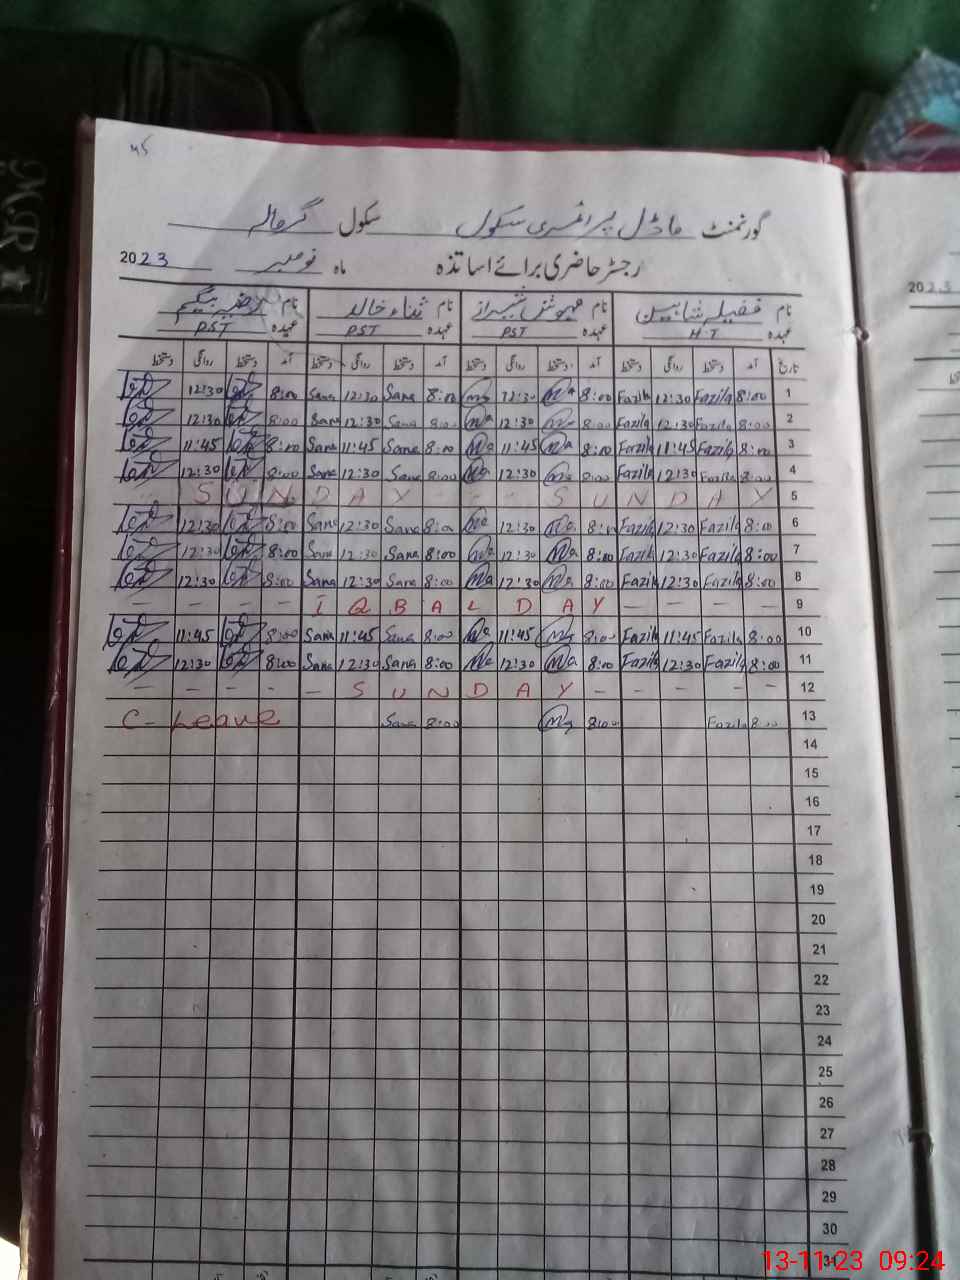 45
گورنمنٹ ماڈل پرائمری سکول سکول گرھالہ
رجسٹر حاضری برائے اساتذہ ماہ نومبر 2023
نام فضیلہ شاہین نام مہوش شیراز نام ثناء خالد نام رضیہ بیگم
عہدہ H.T عہدہ PST عہدہ PST عہدہ PST
تاریخ آمد دستخط روانگی دستخط آمد دستخط روانگی دستخط آمد دستخط روانگی دستخط آمد دستخط روانگی دستخط
12:30 8:00 Sana 12:30 Sana 8:00 12:30 8:00 Fazila 12:30 Fazila 8:00 1
12:30 8:00 Sana 12:30 Sana 8:00 12:30 8:00 Fazila 12:30 Fazila 8:00 2
11:45 8:00 Sana 11:45 Sana 8:00 11:45 8:00 Fazila 11:45 Fazila 8:00 3
12:30 8:00 Sana 12:30 Sana 8:00 12:30 8:00 Fazila 12:30 Fazila 8:00 4
SUNDAY SUNDAY 5
12:30 8:00 Sana 12:30 Sana 8:00 12:30 8:00 Fazila 12:30 Fazila 8:00 6
12:30 8:00 Sana 12:30 Sana 8:00 12:30 8:00 Fazila 12:30 Fazila 8:00 7
12:30 8:00 Sana 12:30 Sana 8:00 12:30 8:00 Fazila 12:30 Fazila 8:00 8
- - - - IQBAL DAY - - - - - 9
11:45 8:00 Sana 11:45 Sana 8:00 11:45 8:00 Fazila 11:45 Fazila 8:00 10
12:30 8:00 Sana 12:30 Sana 8:00 12:30 8:00 Fazila 12:30 Fazila 8:00 11
- - - - - SUNDAY - - - - - 12
C-Leave Sana 8:00 8:00 Fazila 8:00 13
14
15
16
17
18
19
20
21
22
23
24
25
26
27
28
29
30
31
2023
13-11-23 09:24